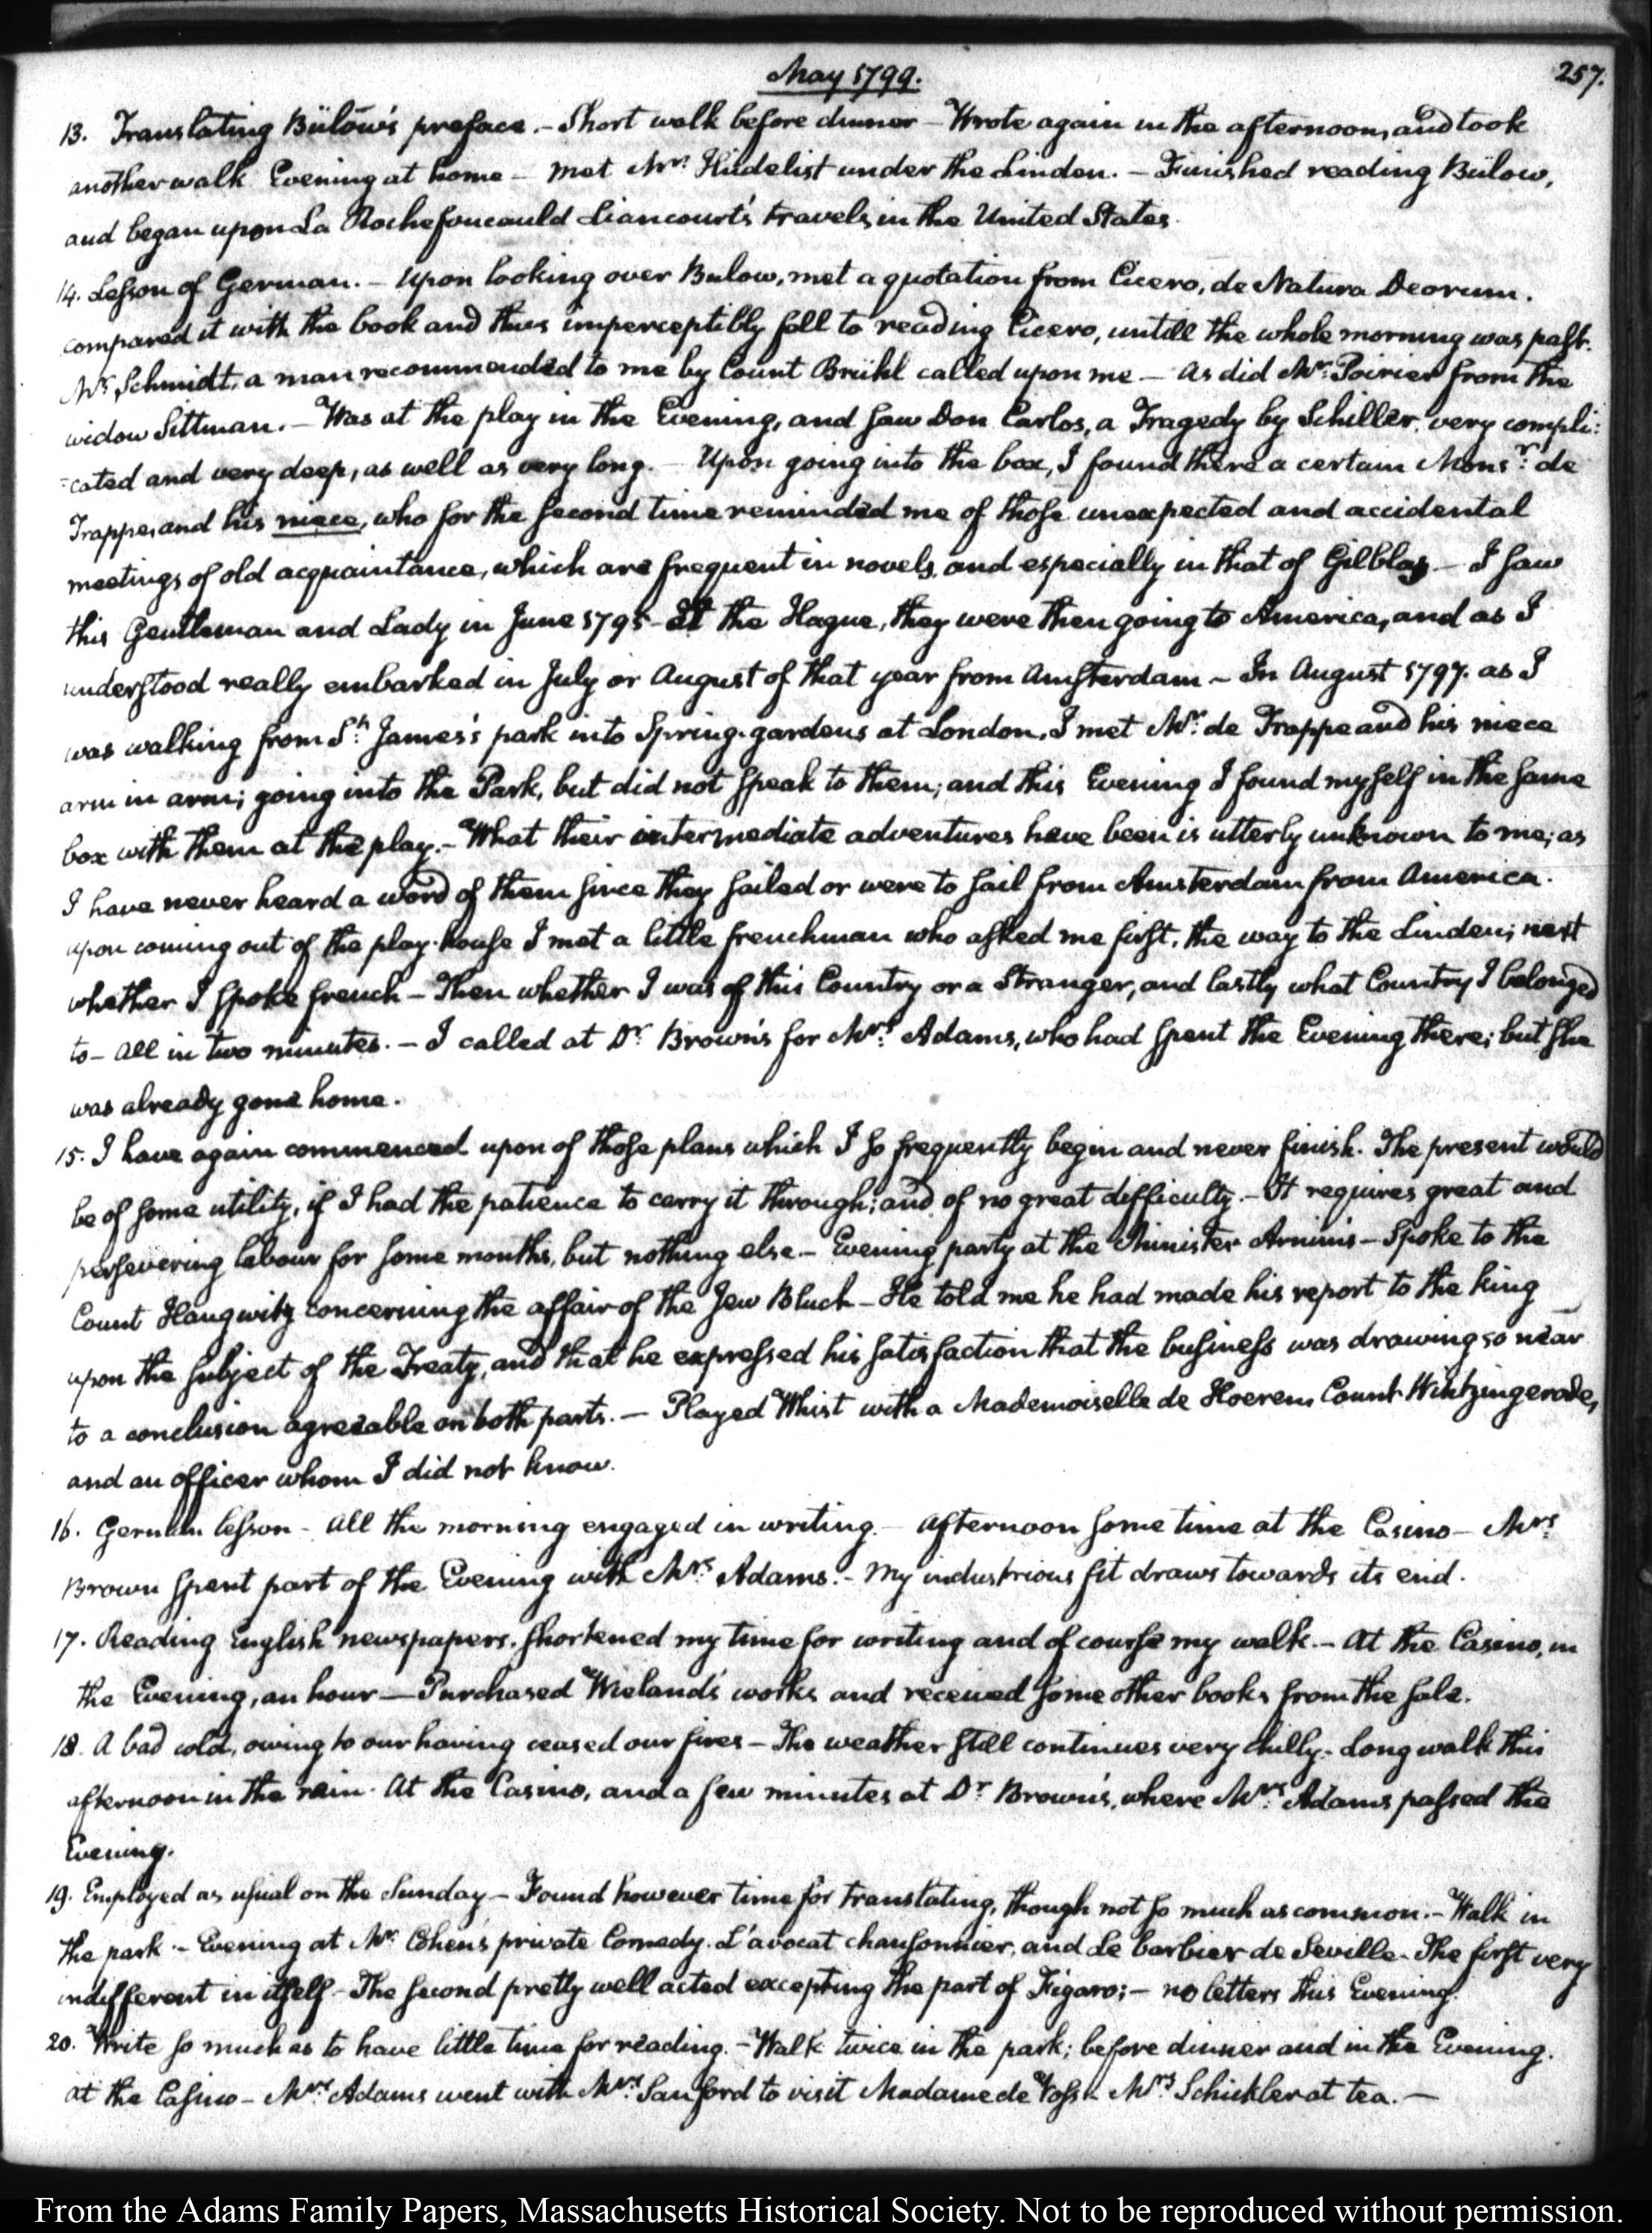 May 1799.
257.
13. Translating Bülow's preface. - Short walk before dinner - Wrote again in the afternoon, and took
another walk Evening at home - met Mrs. Hüdelist under the Linden. - Finished reading Bülow,
and began upon La Rochefoucauld Liancourt's travels in the United States.
14. Lesson of German. - Upon looking over Bulow, met a quotation from Cicero, de Natura Deorum.
compared it with the book and thus imperceptibly fell to reading Cicero, untill the whole morning was past.
Mr. Schmidt, a man recommended to me by Count Brühl called upon me - As did Mr. Poirier from the
widow Sittman. - Was at the play in the Evening, and saw Don Carlos, a Tragedy by Schiller. very compli:
:cated and very deep, as well as very long. - Upon going into the box, I found there a certain Monsr: de
Trappe, and his niece, who for the second time reminded me of those unexpected and accidental
meetings of old acquaintance, which are frequent in novels, and especially in that of Gilblas - I saw
this Gentleman and Lady in June 1795 - At the Hague, they were then going to America, and as I
understood really embarked in July or August of that year from Amsterdam - In August 1797. as I
was walking from St. James's park into Spring-gardens at London, I met Mr. de Trappe and his niece
arm in arm; going into the Park, but did not speak to them; and this Evening I found myself in the same
box with them at the play. - What their intermediate adventures have been is utterly unknown to me; as
I have never heard a word of them since they sailed or were to sail from Amsterdam from America.
upon coming out of the play-house I met a little frenchman who asked me first, the way to the Linden; next
whether I spoke french - Then whether I was of this Country or a Stranger, and lastly what Country I belonged
to - All in two minutes. - I called at Dr. Brown's for Mrs: Adams, who had spent the Evening there; but she
was already gone home.
15. I have again commenced upon of those plans which I so frequently begin and never finish. The present would
be of some utility, if I had the patience to carry it through; and of no great difficulty. - It requires great and
persevering labour for some months, but nothing else. - Evening party at the Minister Arnim's - Spoke to the
Count Haugwitz concerning the affair of the Jew Bluch - He told me he had made his report to the king
upon the subject of the Treaty, and that he expressed his satisfaction that the business was drawing so near
to a conclusion agreeable on both parts. - Played Whist with a Mademoiselle de Hoeren, Count Wintzingerode,
and an officer whom I did not know.
16. German lesson - All the morning engaged in writing. - Afternoon some time at the Casino - Mrs.
Brown spent part of the Evening with Mrs. Adams. - My industrious fit draws towards its end.
17. Reading English newspapers. shortened my time for writing and of course my walk. - At the Casino, in
the Evening, an hour - Purchased Wieland's works and received some other books from the sale.
18. A bad cold, owing to our having ceased our fires - The weather still continues very chilly. Long walk this
afternoon in the rain. At the Casino, and a few minutes at Dr. Brown's, where Mrs: Adams passed the
Evening.
19. Employed as usual on the Sunday - Found however time for translating, though not so much as common. - Walk in
the park - Evening at Mr. Cohen's private Comedy. L'avocat chansonnier, and Le barbier de Seville - The first very
indifferent in itself - The second pretty well acted excepting the part of Figaro; - no letters this Evening.
20. Write so much as to have little time for reading. - Walk twice in the park; before dinner and in the Evening.
at the Casino - Mrs. Adams went with Mrs. Sanford to visit Madame de Voss - Mrs. Schickler at tea. -
From the Adams Family Papers, Massachusetts Historical Society. Not to be reproduced without permission.